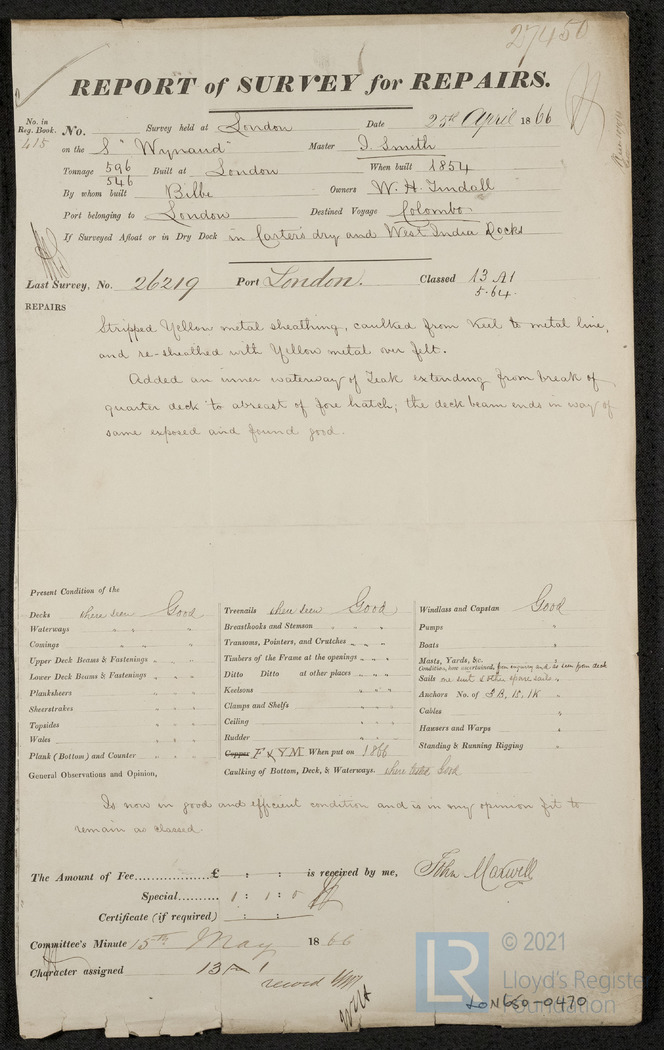 27450
REPORT of SURVEY for REPAIRS.
No. in Reg. Book. 415 No. Survey held at London Date 25th April 1866
on the S "Wynaud" Master J. Smith
Tonnage 596 546 Built at London When built 1854
By whom built Bilbe Owners W. H. Tindall
Port belonging to London Destined Voyage Colombo
If Surveyed Afloat or in Dry Dock in Carter's dry and West India Docks
Last Survey, No. 26219 Port London. Classed 13 A1 5.64.
REPAIRS
Stripped Yellow metal sheathing, caulked from Keel to metal line,
and re-sheathed with Yellow metal over felt.
Added an inner waterway of Teak extending from break of
quarter deck to abreast of fore hatch; the deck beam ends in way of
same exposed and found good.
Present Condition of the
Decks where seen Good
Waterways " " "
Comings " " "
Upper Deck Beams & Fastenings " " "
Lower Deck Beams & Fastenings " " "
Planksheers " " "
Sheerstrakes " " "
Topsides " " "
Wales " " "
Plank (Bottom) and Counter " " "
General Observations and Opinion,
Treenails where seen Good
Breasthooks and Stemson " " "
Transoms, Pointers, and Crutches " " "
Timbers of the Frame at the openings " " "
Ditto Ditto at other places " " "
Keelsons " " "
Clamps and Shelfs " " "
Ceiling " " "
Rudder " " "
Copper F & Y.M. When put on 1866
Caulking of Bottom, Deck, & Waterways. where tested Good
Windlass and Capstan Good
Pumps "
Boats "
Masts, Yards, &c. "
Condition, how ascertained, from enquiry and as seen from deck
Sails one suit & other spare sails "
Anchors No. of 3B, 1S, 1K "
Cables "
Hawsers and Warps "
Standing & Running Rigging "
Is now in good and efficient condition and is in my opinion fit to
remain as classed.
The Amount of Fee £ : : is received by me, John Maxwell
Special 1 : 1 : 0
Certificate (if required) : :
Committee's Minute 15th May 1866
Character assigned 13 A 1
record YM
© 2021
LR Lloyd's Register
Foundation
LON650-0470